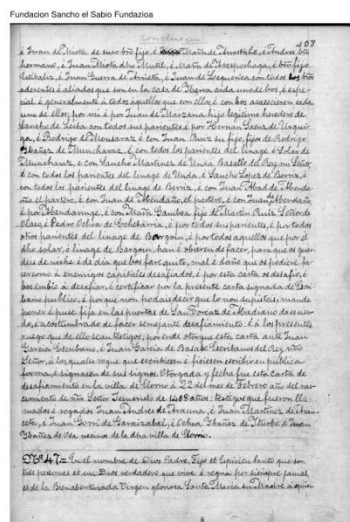 Fundacion Sancho el Sabio Fundazioa
Conclusion
é Juan de Miota de suso bro fijo, é Martin de é Andres bro
hermano, é Juan Miota dho Motil, é Martin de fijo
é Juan Guerra de Arrieta, é Juan de con todos los bros
aderentes é aliados que son en la casa de Ybarra cada uno de bos, é espe-
cial é generalmente á todos aquellos que con ellos, é con bos acaescieren cada
uno de ellos; por mi é por Juan de Marzana hijo legitimo heredero de
Sancho de con todos sus parientes é por Hernan Saenz de
é Rodrigo de é con Juan Ruiz su fijo, fijos de Rodrigo
Ybañez de Muncharaz, é con todos los parientes del linage é Solar de
Muncharaz, é con Sancho Martinez de Unda Basallo del Rey mi Señor,
é con todos los parientes del linage de Unda, é Sancho Lopez de Berriz, é
con todos los parientes del linage de Berriz, é con Juan Abad de Menda-
ño el partero, é con Juan de Mendaño, el partero, é con Juan
é por é con Martin Gamboa fijo de Martin Ruiz Señor de
Olaso, é Pedro Ochoa de é por todos sus parientes, é por todos
otros parientes del linage de Bargoin, é por todos aquellos que por el
dho solar, é linage de Bargoin, han é obieren de facer, para que os guar-
dees de noche é de dia que bos farè quito, mal é daño que os podiere fa-
cer como á enemigos capitales desafiados, é por esta carta os desafio, é
bos embio á desafiar, é certificar por la presente carta signada de Escri-
bano publico, é porque non podais decir que lo non supisteis, mande
poner é puse fija en las puertas de San Torcaz de Abadiano de suso
do, é acostumbrado de facer semejante desafiamiento: é á los presentes
ruego que de ello sean testigos; por ende otorgué esta carta ante Juan
Garcia Escribano, é Juan Garcia de Basabe Escribanos del Rey, ntro
Señor, á los quales rogue que escribiesen é ficiesen escribir en publica
forma, é signasen de sus signos. Otorgada y fecha fue esta carta de
desafiamiento en la villa de Elorrio á 22 del mes de Febrero año del nas-
cimiento de nro Señor Jesucristo de 1468 años: testigos que fueron lla-
mados é rogados Juan Andres de Arauna, é Juan Martinez de
é Juan de Garaizabal, é Ochoa Ybañez de Yturbe é Juan
Ybañez de Vea vecinos de la dha villa de Elorrio.
Nº 47.= En el nombre de Dios Padre, Fijo el Espiritu Santo que son
tres personas é un Dios verdadero que vive é regna por siempre jamas
et de la Bienabenturada Virgen gloriosa Santa Maria su Madre á quien